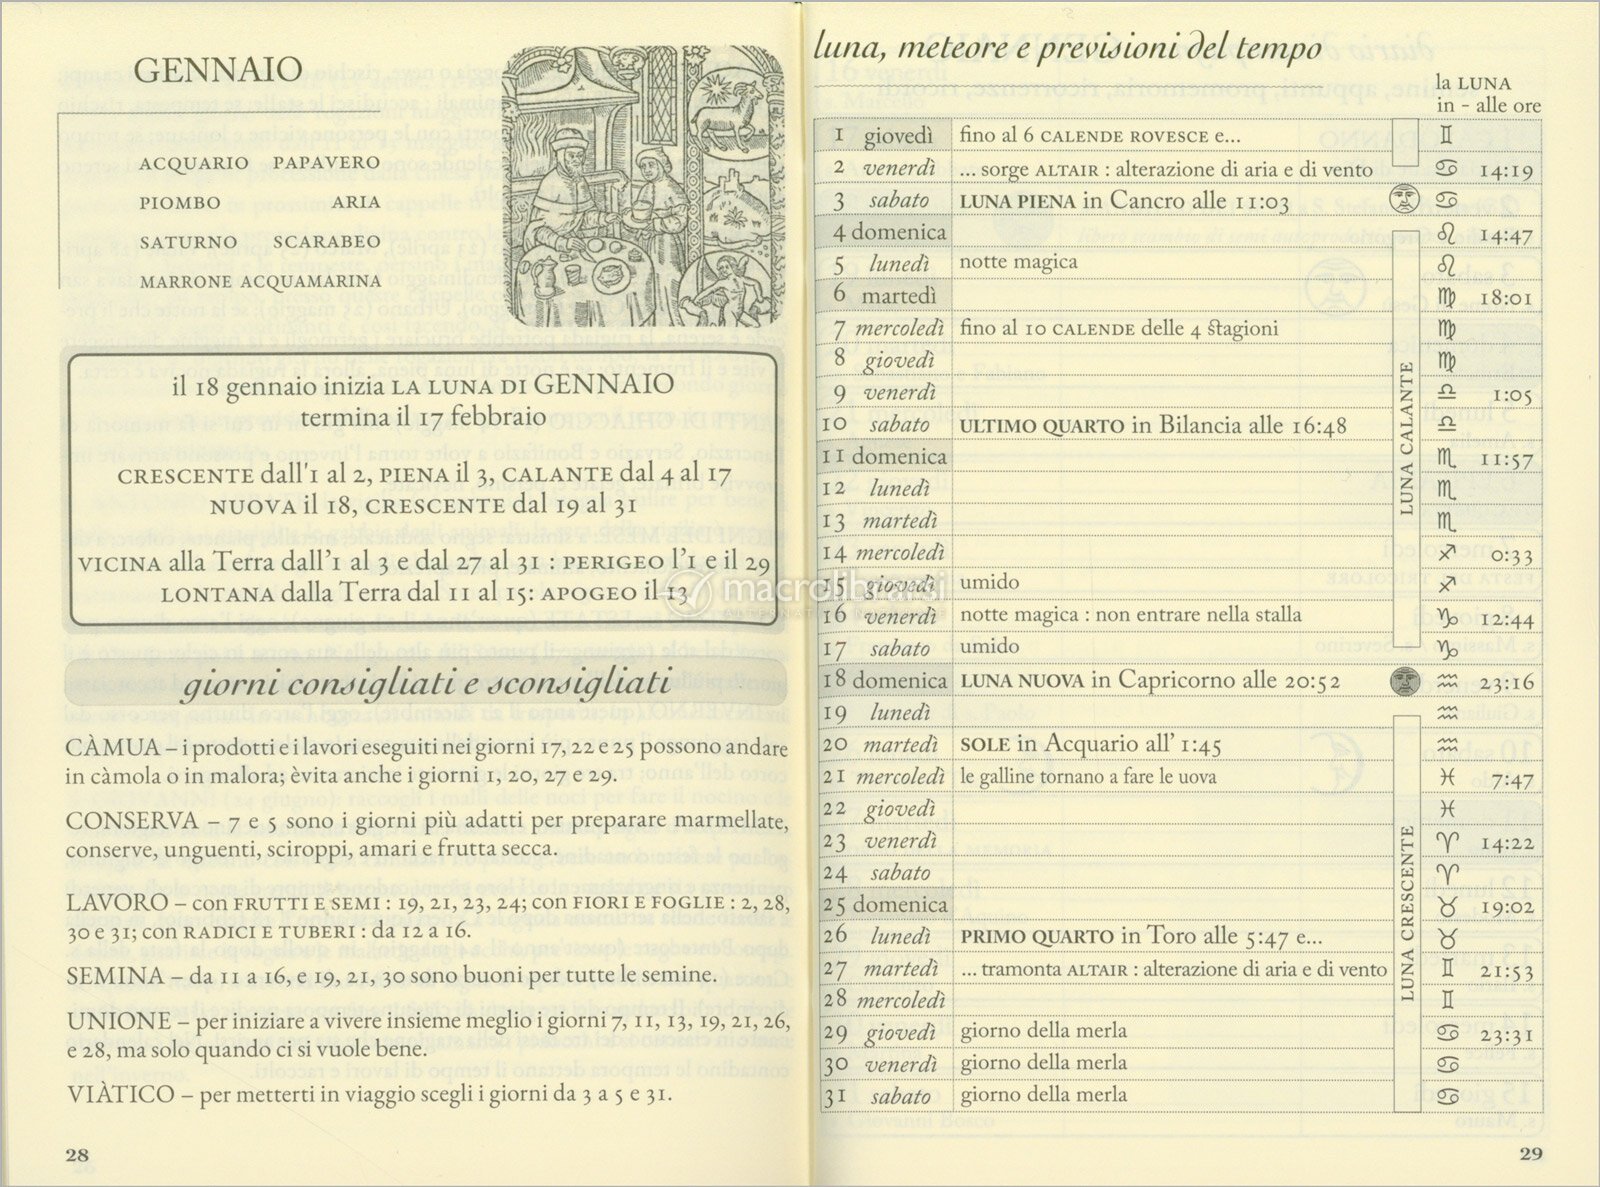 GENNAIO
ACQUARIO PAPAVERO
PIOMBO ARIA
SATURNO SCARABEO
MARRONE ACQUAMARINA
il 18 gennaio inizia LA LUNA DI GENNAIO
termina il 17 febbraio
CRESCENTE dall'1 al 2, PIENA il 3, CALANTE dal 4 al 17
NUOVA il 18, CRESCENTE dal 19 al 31
VICINA alla Terra dall'1 al 3 e dal 27 al 31 : PERIGEO l'1 e il 29
LONTANA dalla Terra dal 11 al 15: APOGEO il 13
giorni consigliati e sconsigliati
CÀMUA – i prodotti e i lavori eseguiti nei giorni 17, 22 e 25 possono andare
in càmola o in malora; èvita anche i giorni 1, 20, 27 e 29.
CONSERVA – 7 e 5 sono i giorni più adatti per preparare marmellate,
conserve, unguenti, sciroppi, amari e frutta secca.
LAVORO – con FRUTTI E SEMI : 19, 21, 23, 24; con FIORI E FOGLIE : 2, 28,
30 e 31; con RADICI E TUBERI : da 12 a 16.
SEMINA – da 11 a 16, e 19, 21, 30 sono buoni per tutte le semine.
UNIONE – per iniziare a vivere insieme meglio i giorni 7, 11, 13, 19, 21, 26,
e 28, ma solo quando ci si vuole bene.
VIÀTICO – per metterti in viaggio scegli i giorni da 3 a 5 e 31.
28
macrolibrarsi
luna, meteore e previsioni del tempo
la LUNA
in - alle ore
1 giovedì fino al 6 CALENDE ROVESCE e... ♊
2 venerdì ... sorge ALTAIR : alterazione di aria e di vento ♋ 14:19
3 sabato LUNA PIENA in Cancro alle 11:03 ♋
4 domenica ♌ 14:47
5 lunedì notte magica ♌
6 martedì ♍ 18:01
7 mercoledì fino al 10 CALENDE delle 4 stagioni ♍
8 giovedì ♍
9 venerdì ♎ 1:05
10 sabato ULTIMO QUARTO in Bilancia alle 16:48 ♎
11 domenica ♏ 11:57
12 lunedì ♏
13 martedì ♏
14 mercoledì ♐ 0:33
15 giovedì umido ♐
16 venerdì notte magica : non entrare nella stalla ♑ 12:44
17 sabato umido ♑
18 domenica LUNA NUOVA in Capricorno alle 20:52 ♒ 23:16
19 lunedì ♒
20 martedì SOLE in Acquario all' 1:45 ♒
21 mercoledì le galline tornano a fare le uova ♓ 7:47
22 giovedì ♓
23 venerdì ♈ 14:22
24 sabato ♈
25 domenica ♉ 19:02
26 lunedì PRIMO QUARTO in Toro alle 5:47 e... ♉
27 martedì ... tramonta ALTAIR : alterazione di aria e di vento ♊ 21:53
28 mercoledì ♊
29 giovedì giorno della merla ♋ 23:31
30 venerdì giorno della merla ♋
31 sabato giorno della merla ♋
LUNA CALANTE
LUNA CRESCENTE
29